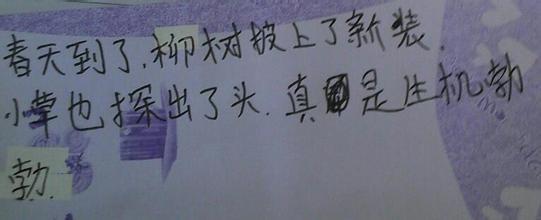 春天到了,柳树披上了新装.
小草也探出了头.真是生机勃
勃.